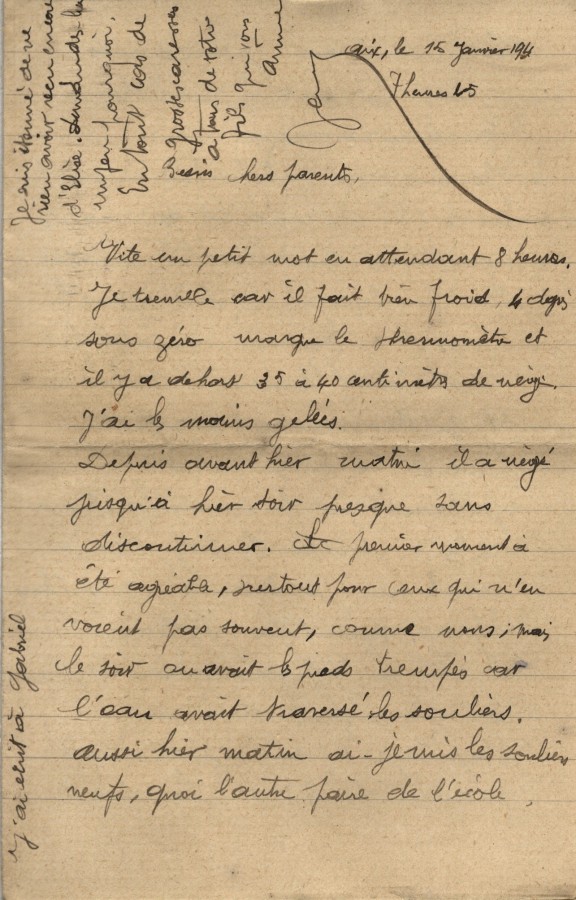 Aix, le 15 Janvier 1941
7 heures 45
Biens chers parents,
Vite un petit mot en attendant 8 heures.
Je tremble car il fait bien froid, 4 degrés
sous zéro marque le thermomètre et
il y a dehors 35 à 40 centimètres de neige.
J'ai les mains gelées.
Depuis avant hier matin il a neigé
jusqu'à hier soir presque sans
discontinuer. Le premier moment a
été agréable, surtout pour ceux qui n'en
voient pas souvent, comme nous; mais
le soir on avait les pieds trempés car
l'eau avait traversé les souliers.
aussi hier matin ai-je mis les souliers
neufs, quoi l'autre paire de l'école.
J'ai écrit à Gabriel
Je suis étonné de ne
rien avoir reçu encore
d'Elise. demandez lui
un peu pourquoi.
En tout cas de
grosses caresses
à tous de votre
fils qui vous
aime